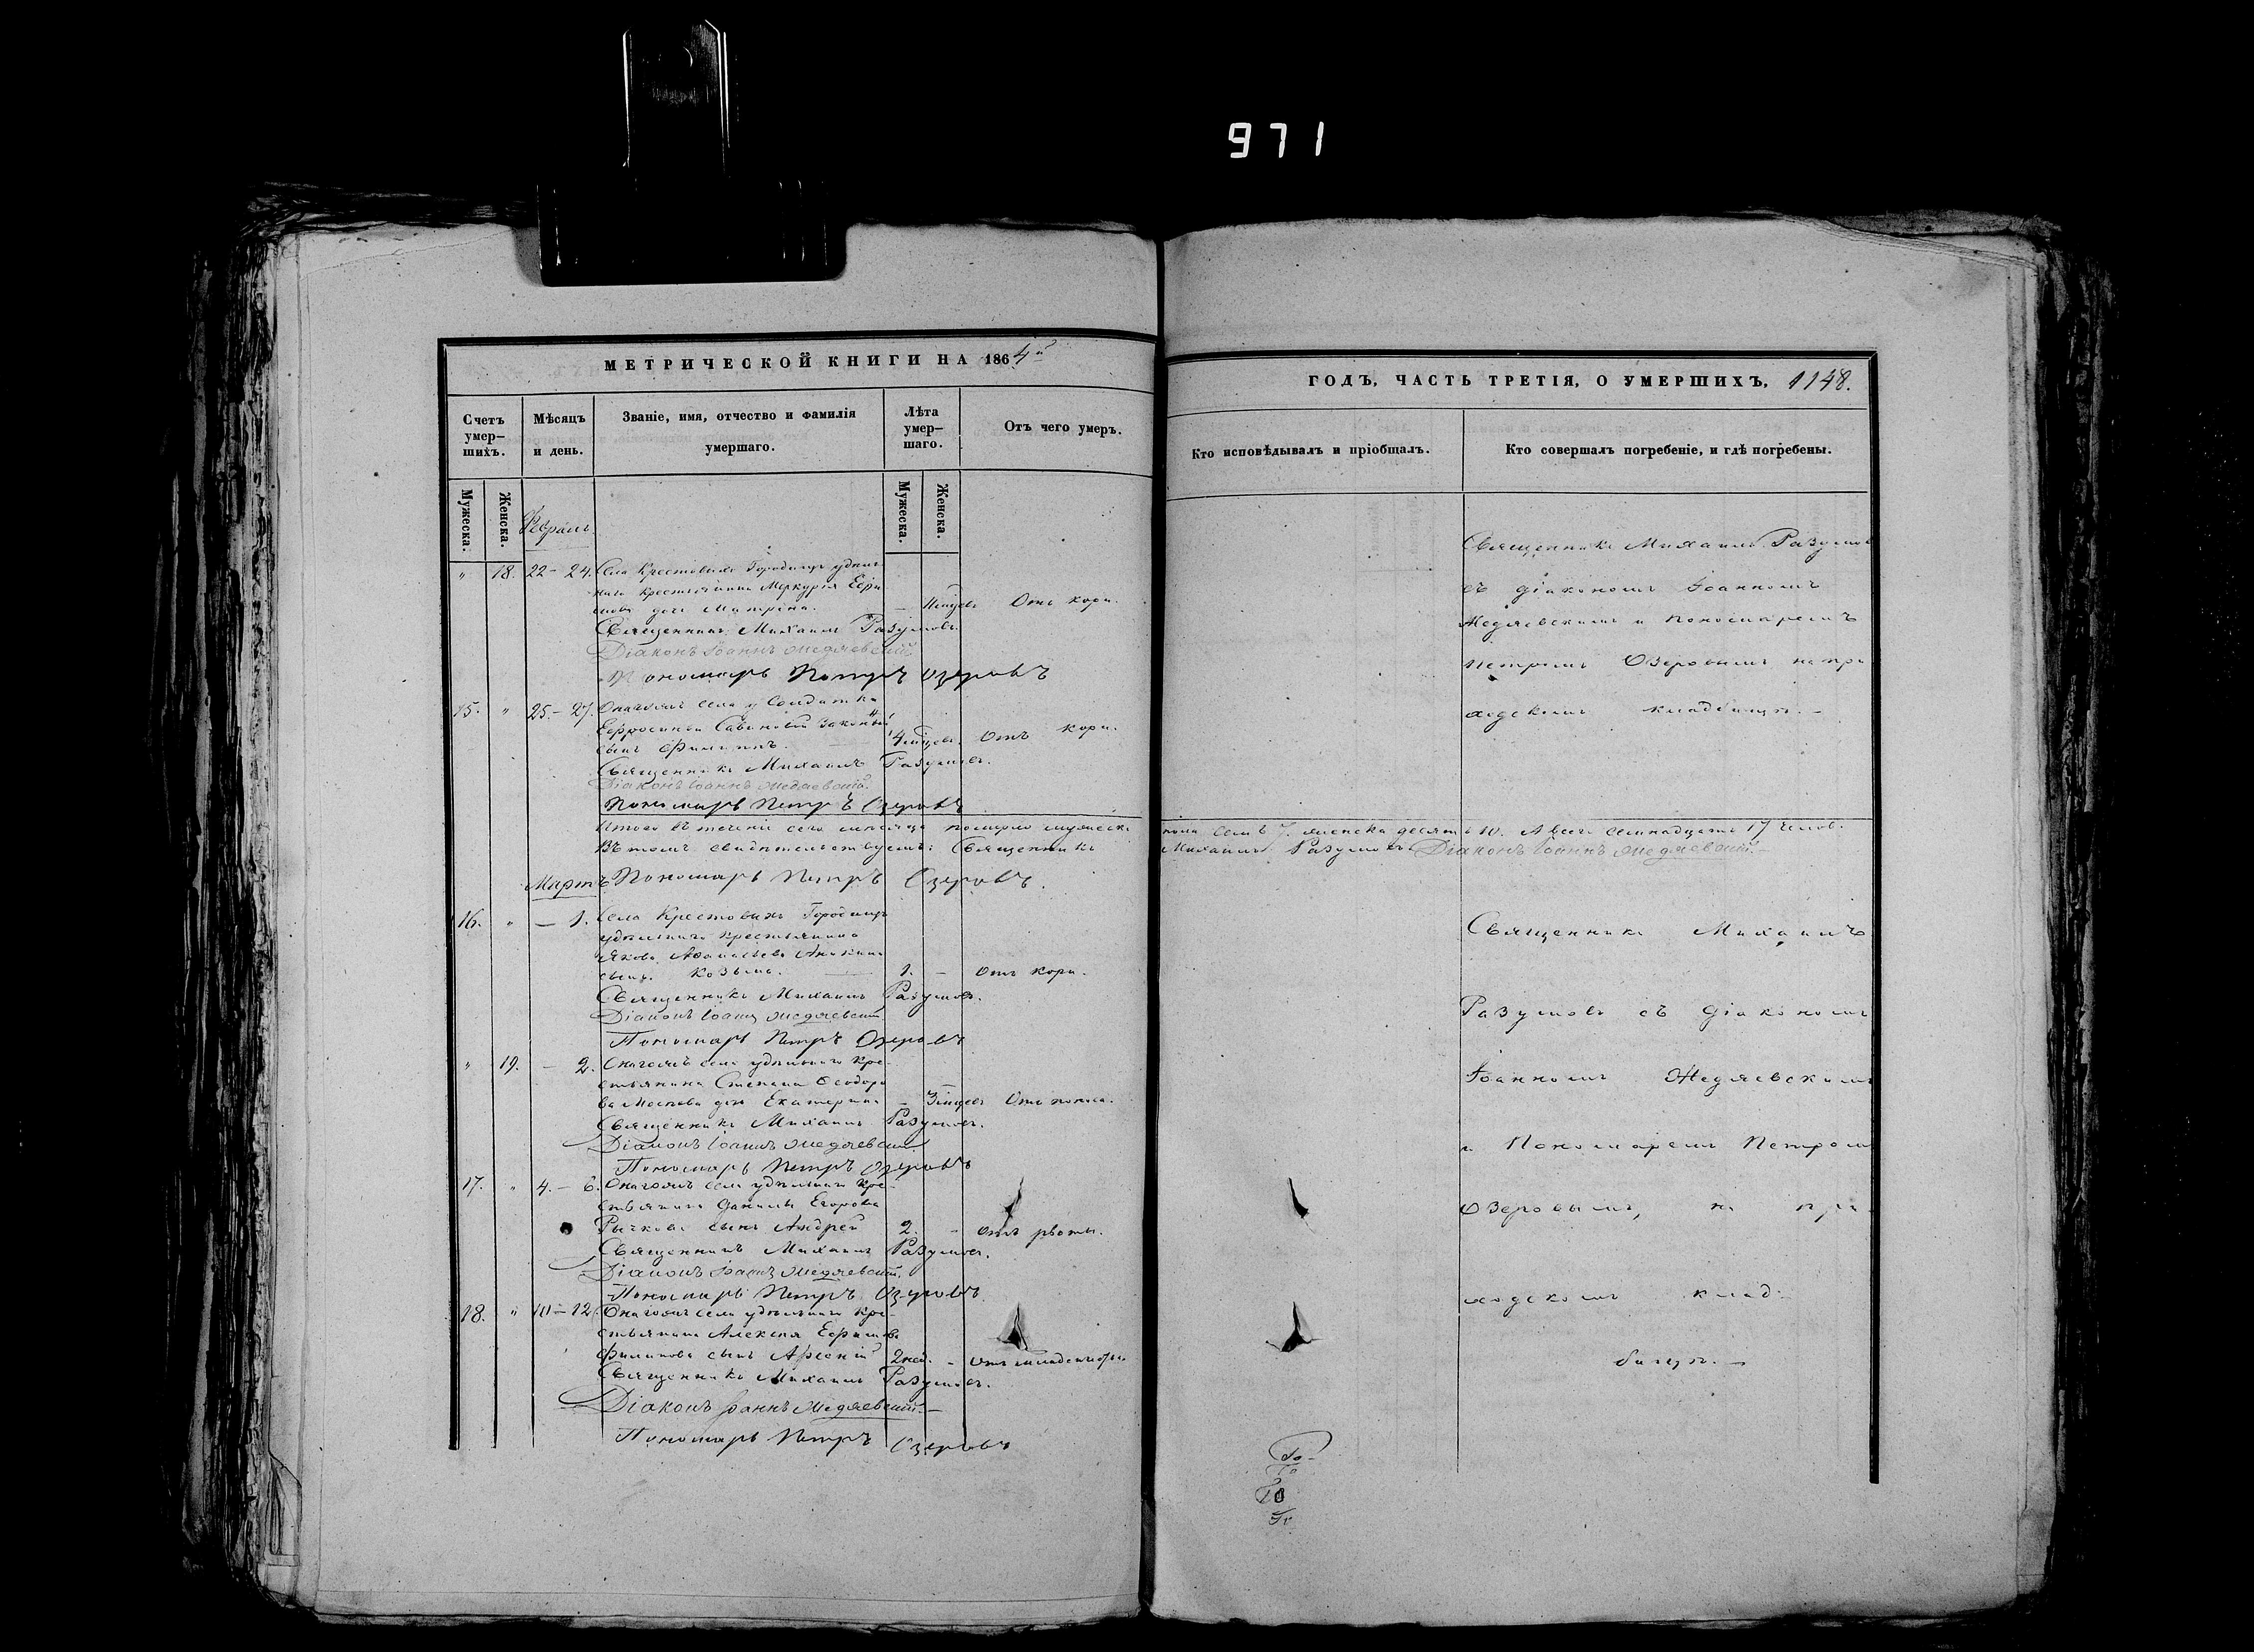 971
МЕТРИЧЕСКОЙ КНИГИ НА 1864й
Счетъ умер-шихъ.
Мѣсяцъ и день.
Званіе, имя, отчество и фамилія умершаго.
Лѣта умер-шаго.
Отъ чего умеръ.
Мужеска.
Женска.
Мужеска.
Женска.
Февраль.
" 18. 22 - 24. Села Крестовыхъ Городищъ удѣль-
наго крестьянина Меркурія Ефи
мова дочь Матрена. - Мѣсяцъ Отъ кори.
Священникъ Михаилъ Разумовъ.
Діаконъ Іоаннъ Медяевскій
Пономарь Петръ Озеровъ
15. " 25. - 27. Онагожъ села у Солдатки
Евфросиніи Савиновой законный
сынъ Филиппъ. 4 мѣсяц. Отъ кори.
Священникъ Михаилъ Разумовъ.
Діаконъ Іоаннъ Медяевскій.
Пономарь Петръ Озеровъ
Итого въ теченіи сего мѣсяца померло мужеска
Въ томъ свидѣтельствуемъ: Священникъ
Мартъ Пономарь Петръ Озеровъ.
16. " - 1. Села Крестовыхъ Городищъ
удѣльнаго крестьянина
Якова Аѳанасьева Аникина
сынъ Козьма. 1. - Отъ кори.
Священникъ Михаилъ Разумовъ.
Діаконъ Іоаннъ Медяевскій
Пономарь Петръ Озеровъ
" 19. - 2. Онагожъ села удѣльнаго кре-
стьянина Степана Ѳеодоро
ва дочь Екатерина - 3 мѣсяц Отъ поноса.
Священникъ Михаилъ Разумовъ.
Діаконъ Іоаннъ Медяевскій.
Пономарь Петръ Озеровъ
17. " 4. - 6. Онагожъ села удѣльнаго кре-
стьянина Данилы Егорова
Рычкова сынъ Андрей 2. - Отъ рвоты.
Священникъ Михаилъ Разумовъ.
Діаконъ Іоаннъ Медяевскій.
Пономарь Петръ Озеровъ
18. " 10 - 12. Онагожъ села удѣльнаго кре-
стьянина Алексѣя Ефимова
Филипова сынъ Арсеній 2 нед. - Отъ
Священникъ Михаилъ Разумовъ.
Діаконъ Іоаннъ Медяевскій.
Пономарь Петръ Озеровъ
ГОДЪ, ЧАСТЬ ТРЕТІЯ, О УМЕРШИХЪ, 1148.
Кто исповѣдывалъ и пріобщалъ.
Кто совершалъ погребеніе, и гдѣ погребены.
Священникъ Михаилъ Разумов
съ діакономъ Іоанномъ
Медяевскимъ и пономаремъ
Петромъ Озеровымъ на при
ходскомъ кладбищѣ. -
пола семь 7. женска десять 10. А всего семнадцать 17 челов.
Михаилъ Разумовъ Діаконъ Іоаннъ Медяевскій. -
Священникъ Михаилъ
Разумовъ съ діакономъ
Іоанномъ Медяевскимъ
и Пономаремъ Петромъ
Озеровымъ, на при
ходскомъ клад-
бищѣ. -